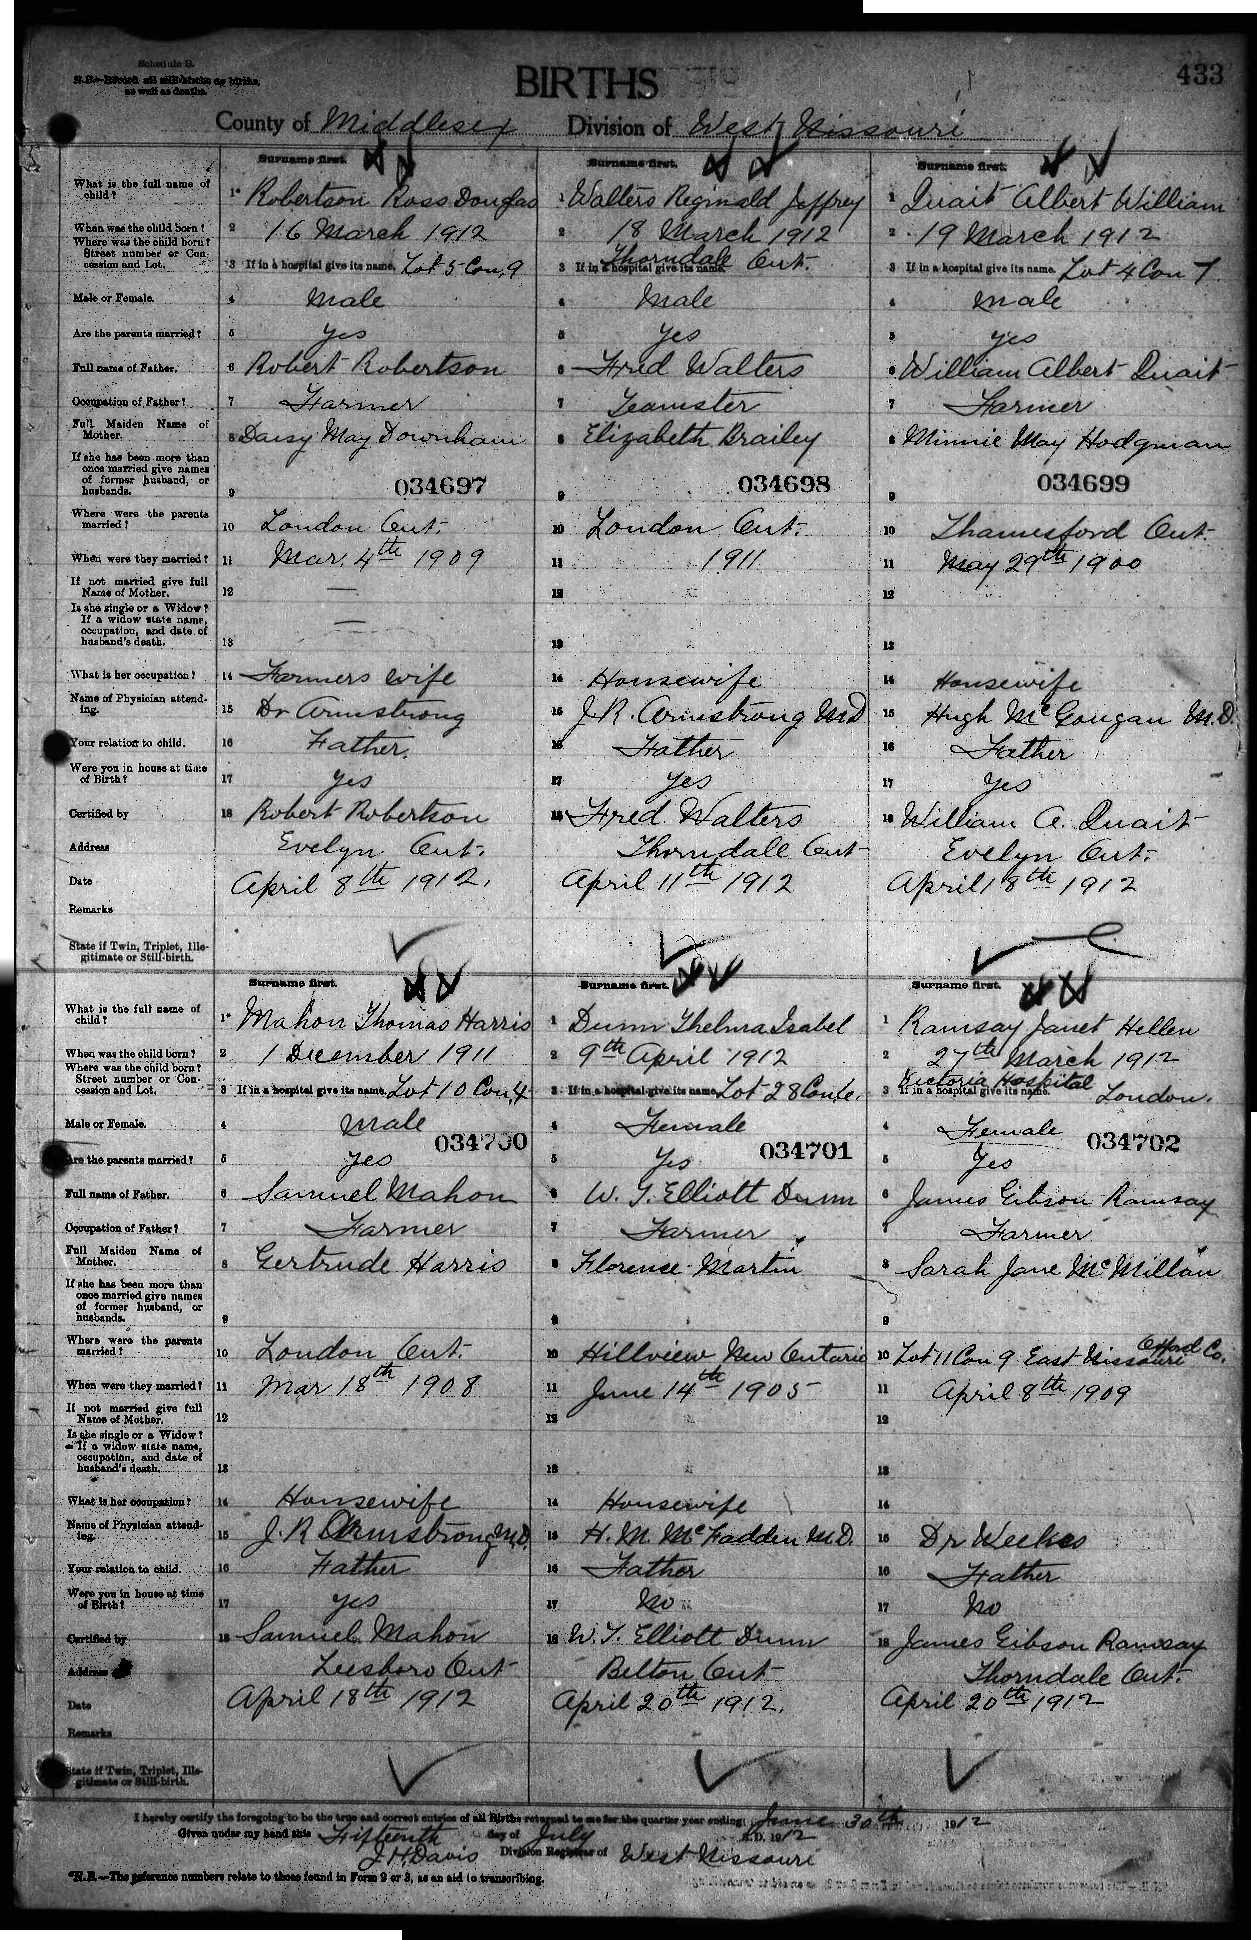 Schedule B.
N.B.—Record all still-births as births, as well as deaths.
BIRTHS
433
County of Middlesex Division of West Nissouri
Surname first.
Surname first.
Surname first.
What is the full name of child? 1* Robertson Ross Douglas 1 Walters Reginald Jeffrey 1 Quait Albert William
When was the child born? 2 16 March 1912 2 18 March 1912 2 19 March 1912
Where was the child born? Street number or Concession and Lot. 3 If in a hospital give its name. Lot 5 Con. 9 3 If in a hospital give its name. Thorndale Ont. 3 If in a hospital give its name. Lot 4 Con 7
Male or Female. 4 Male 4 Male 4 Male
Are the parents married? 5 Yes 5 Yes 5 Yes
Full name of Father. 6 Robert Robertson 6 Fred Walters 6 William Albert Quait
Occupation of Father? 7 Farmer 7 Teamster 7 Farmer
Full Maiden Name of Mother. 8 Daisy May Downham 8 Elizabeth Brailey 8 Minnie May Hodgman
If she has been more than once married give names of former husband, or husbands. 9 034697 9 034698 9 034699
Where were the parents married? 10 London Ont. 10 London Ont. 10 Thamesford Ont.
When were they married? 11 Mar. 4th 1909 11 1911 11 May 29th 1900
If not married give full Name of Mother. 12 — 12 12
Is she single or a Widow? If a widow state name, occupation, and date of husband's death. 13 — 13 13
What is her occupation? 14 Farmers wife 14 Housewife 14 Housewife
Name of Physician attending. 15 Dr Armstrong 15 J.R. Armstrong M.D 15 Hugh McGougan M.D.
Your relation to child. 16 Father. 16 Father 16 Father
Were you in house at time of Birth? 17 Yes 17 Yes 17 Yes
Certified by 18 Robert Robertson 18 Fred Walters 18 William A. Quait
Address Evelyn Ont. Thorndale Ont Evelyn Ont.
Date April 8th 1912. April 11th 1912 April 18th 1912
Remarks
State if Twin, Triplet, Illegitimate or Still-birth.
Surname first.
Surname first.
Surname first.
What is the full name of child? 1* Mahon Thomas Harris 1 Dunn Thelma Isabel 1 Ramsay Janet Hellen
When was the child born? 2 1 December 1911 2 9th April 1912 2 27th March 1912
Where was the child born? Street number or Concession and Lot. 3 If in a hospital give its name. Lot 10 Con. 4 3 If in a hospital give its name. Lot 28 Con 3 If in a hospital give its name. Victoria Hospital London.
Male or Female. 4 Male 4 Female 4 Female
034700 034701 034702
Are the parents married? 5 Yes 5 Yes 5 Yes
Full name of Father. 6 Samuel Mahon 6 W. T. Elliott Dunn 6 James Gibson Ramsay
Occupation of Father? 7 Farmer 7 Farmer 7 Farmer
Full Maiden Name of Mother. 8 Gertrude Harris 8 Florence Martin 8 Sarah Jane McMillan
If she has been more than once married give names of former husband, or husbands. 9 9 9
Where were the parents married? 10 London Ont. 10 Hillview New Ontario 10 Lot 11 Con 9 East Nissouri Oxford Co.
When were they married? 11 Mar 18th 1908 11 June 14th 1905 11 April 8th 1909
If not married give full Name of Mother. 12 12 12
Is she single or a Widow? If a widow state name, occupation, and date of husband's death. 13 13 13
What is her occupation? 14 Housewife 14 Housewife 14
Name of Physician attending. 15 J. R Armstrong M.D. 15 H. M. McFadden M.D. 15 Dr Weekes
Your relation to child. 16 Father 16 Father 16 Father
Were you in house at time of Birth? 17 Yes 17 No 17 No
Certified by 18 Samuel Mahon 18 W. T. Elliott Dunn 18 James Gibson Ramsay
Address Leesboro Ont Belton Ont Thorndale Ont.
Date April 18th 1912 April 20th 1912. April 20th 1912
Remarks
State if Twin, Triplet, Illegitimate or Still-birth.
I hereby certify the foregoing to be the true and correct entries of all Births returned to me for the quarter year ending June 30th 1912
Given under my hand this Fifteenth day of July A.D. 1912
J. H. Davis Division Registrar of West Nissouri
*N.B.—The reference numbers relate to those found in Form 9 or 3, as an aid to transcribing.